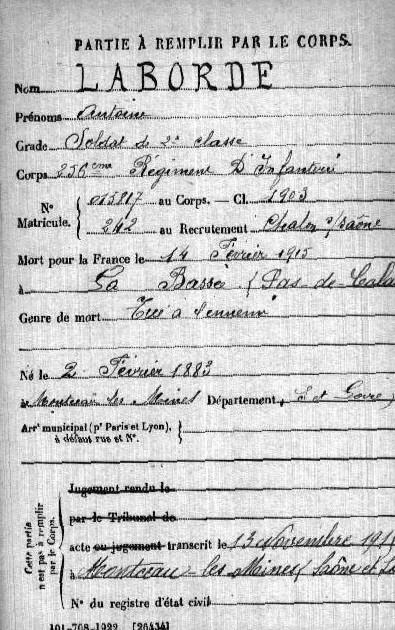 PARTIE À REMPLIR PAR LE CORPS.
Nom LABORDE
Prénoms Antoine
Grade Soldat de 2e classe
Corps 256eme Régiment D'Infanterie
N° Matricule. { 015817 au Corps. — Cl. 1903
242 au Recrutement Chalon s/Saône
Mort pour la France le 14 Février 1915
à La Bassée (Pas-de-Cala
Genre de mort Tué à l'ennemi
Né le 2 Février 1883
à Montceau les Mines Département S et Loire
Arrt municipal (pr Paris et Lyon), à défaut rue et N°. }
Cette partie n'est pas à remplir par le Corps.
Jugement rendu le
par le Tribunal de
acte ou jugement transcrit le 13 Novembre 191
à Montceau-les-Mines (Saône et Lo
N° du registre d'état civil
101-708-1922. [26434]